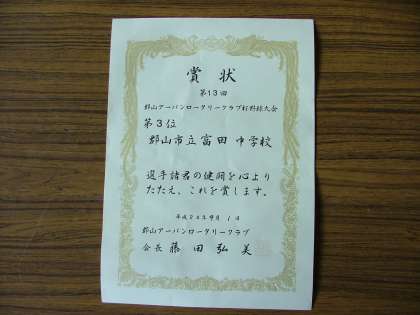 賞状
第13回
郡山アーバンロータリークラブ杯野球大会
第3位
郡山市立富田中学校
選手諸君の健闘を心より
たたえ、これを賞します。
平成24年9月1日
郡山アーバンロータリークラブ
会長 藤田弘美